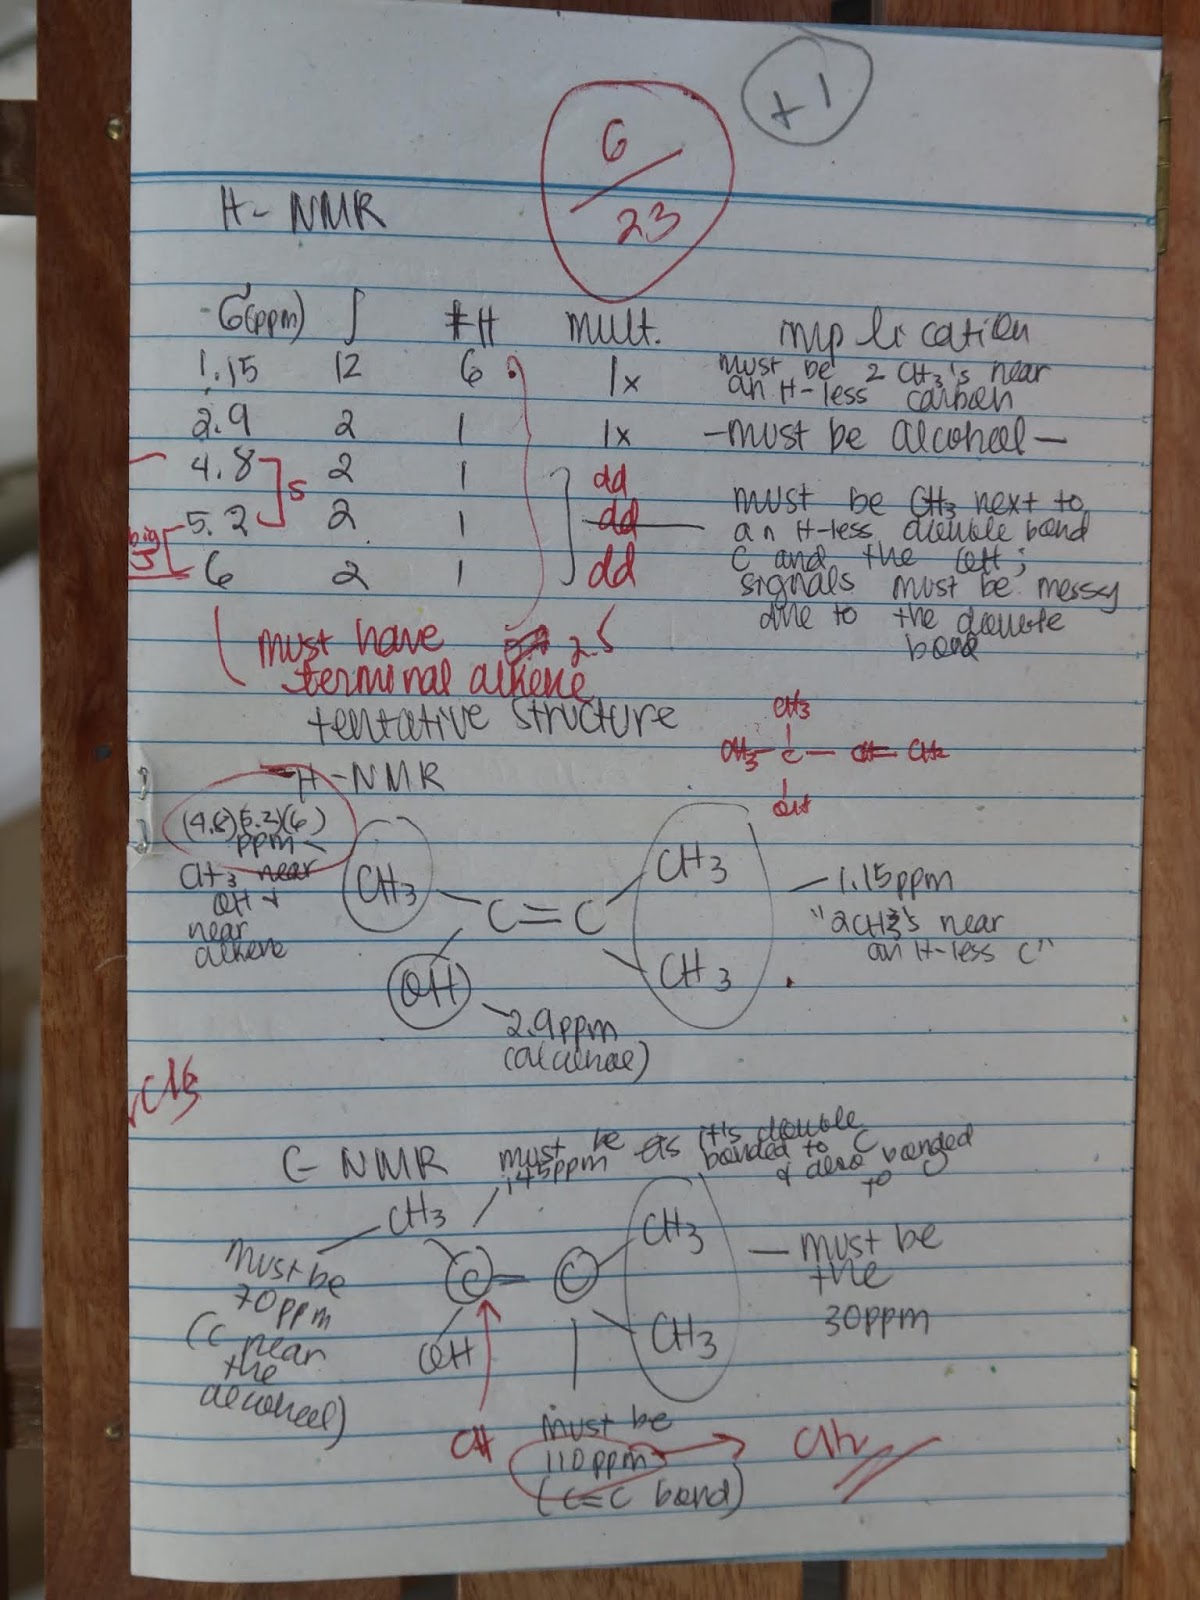 +1
6
23
H- NMR
δ(ppm) ∫ #H mult. implication
1.15 12 6 1x must be 2 CH3's near
an H-less carbon
2.9 2 1 1x -must be alcohol-
4.8 2 1 dd
5 must be CH3 next to
5.2 2 1 dd an H-less double bond
big C and the OH;
J
6 2 1 dd signals must be messy
due to the double
bond
must have 2.5
terminal alkene
tentative structure
CH3
CH3 - C - CH = CH2
OH
H-NMR
(4.8)(5.2)(6)
ppm
CH3 near
OH +
near
alkene
CH3 C = C CH3
OH CH3
1.15ppm
"2CH3's near
an H-less C"
2.9ppm
CH3
C- NMR
must be as it's double
145ppm bonded to C
& also bonded
to
CH3 C = C CH3
OH CH3
must be
70ppm
(C near
the
alcohol)
must be
the
30ppm
CH must be
110ppm CH2
(C=C bond)